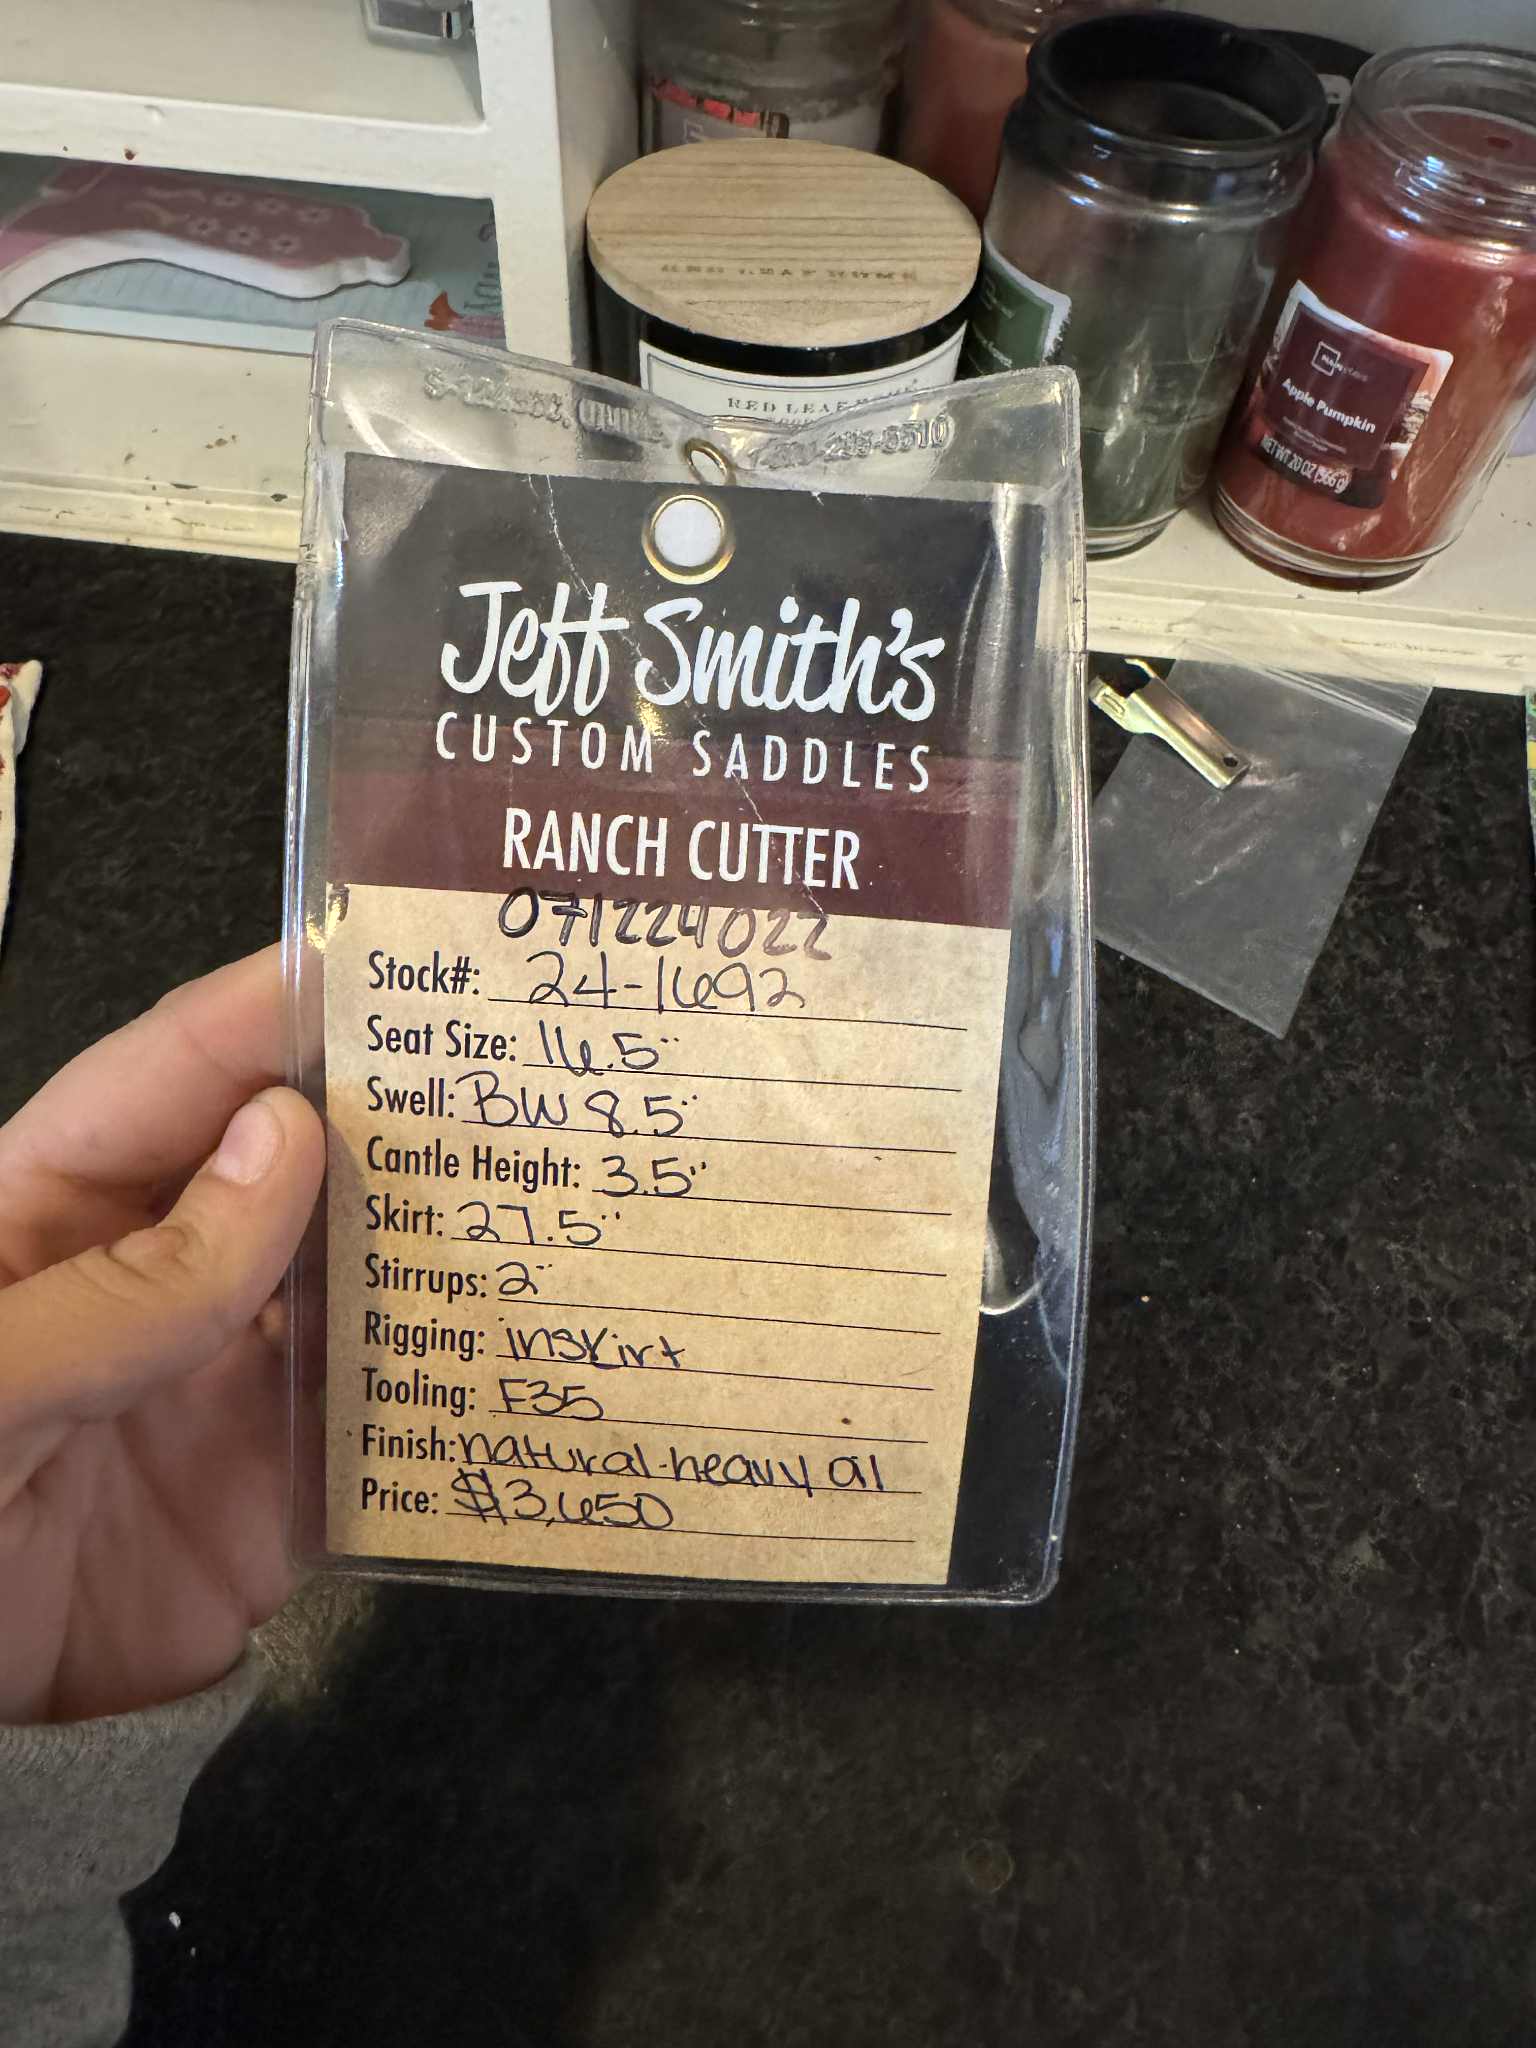 RED LEAF HOME
RED LEAF HOME
Apple Pumpkin
NET WT 20 OZ (566 g)
Jeff Smith's
CUSTOM SADDLES
RANCH CUTTER
071224022
Stock#: 24-1692
Seat Size: 16.5"
Swell: BW 8.5"
Cantle Height: 3.5"
Skirt: 27.5"
Stirrups: 2"
Rigging: inskirt
Tooling: F35
Finish: natural-heavy oil
Price: $3,650